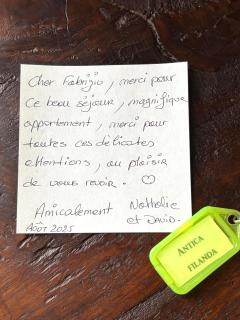 Cher Fabrizio, merci pour
ce beau séjour, magnifique
appartement, merci pour
toutes ces délicates
attentions, au plaisir
de vous revoir. ♡
Amicalement Nathalie
et DAVID.
AOÛT 2025
ANTICA
FILANDA